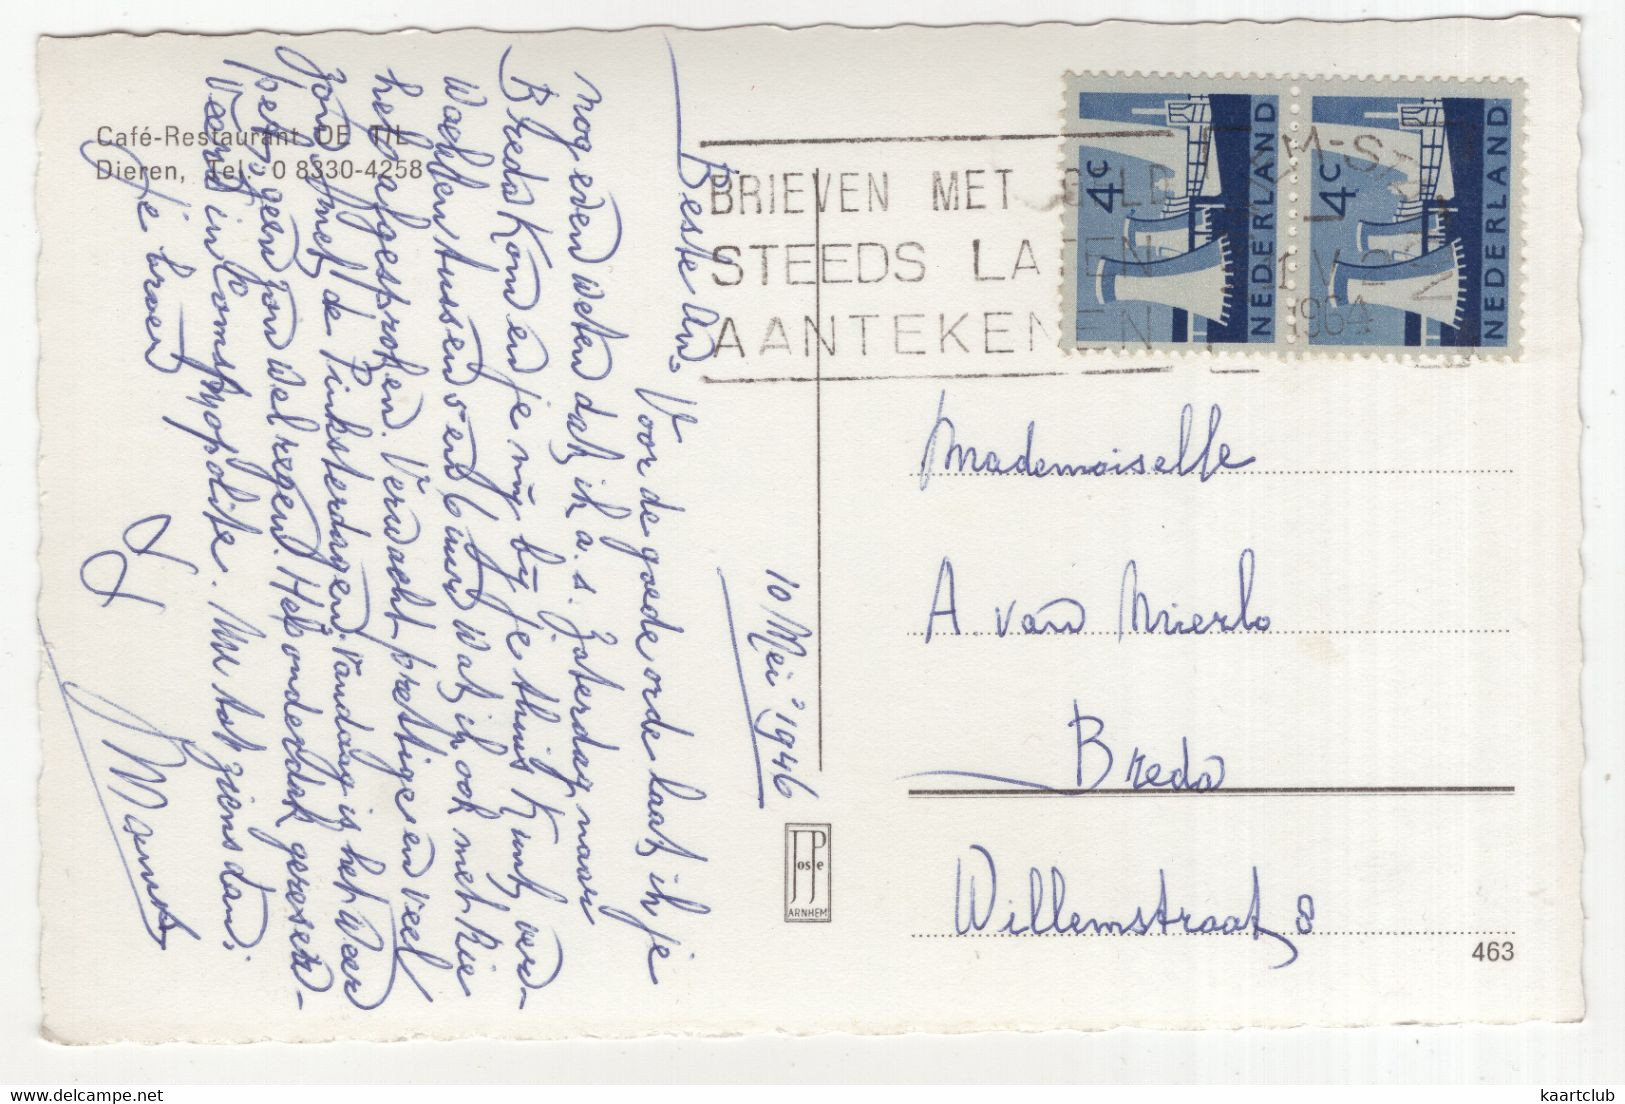 Café-Restaurant DE TIL
Dieren, Tel. 0 8330-4258
Beste An.
Voor de goede orde laat ik je
nog even weten dat ik a.s. Zaterdag naar
Breda kom en je mij bij je thuis kunt ver-
wachten tussen 5 en 6 uur wat ik ook met Rie
heb afgesproken. Verwacht prettige en veel
zon met de Pinksterdagen. Vandaag is het weer
betrogen zon wel regen. Heb onderdak gereser-
veerd in Cosmopolite. Nu tot ziens dan.
Je broer
10 Mei 1946
BRIEVEN MET GELD
STEEDS LATEN
AANTEKENEN
1964
4c
NEDERLAND
4c
NEDERLAND
Mademoiselle
A. van Mierlo
Breda
Willemstraat 8
JosPe
ARNHEM
463
kaartclub